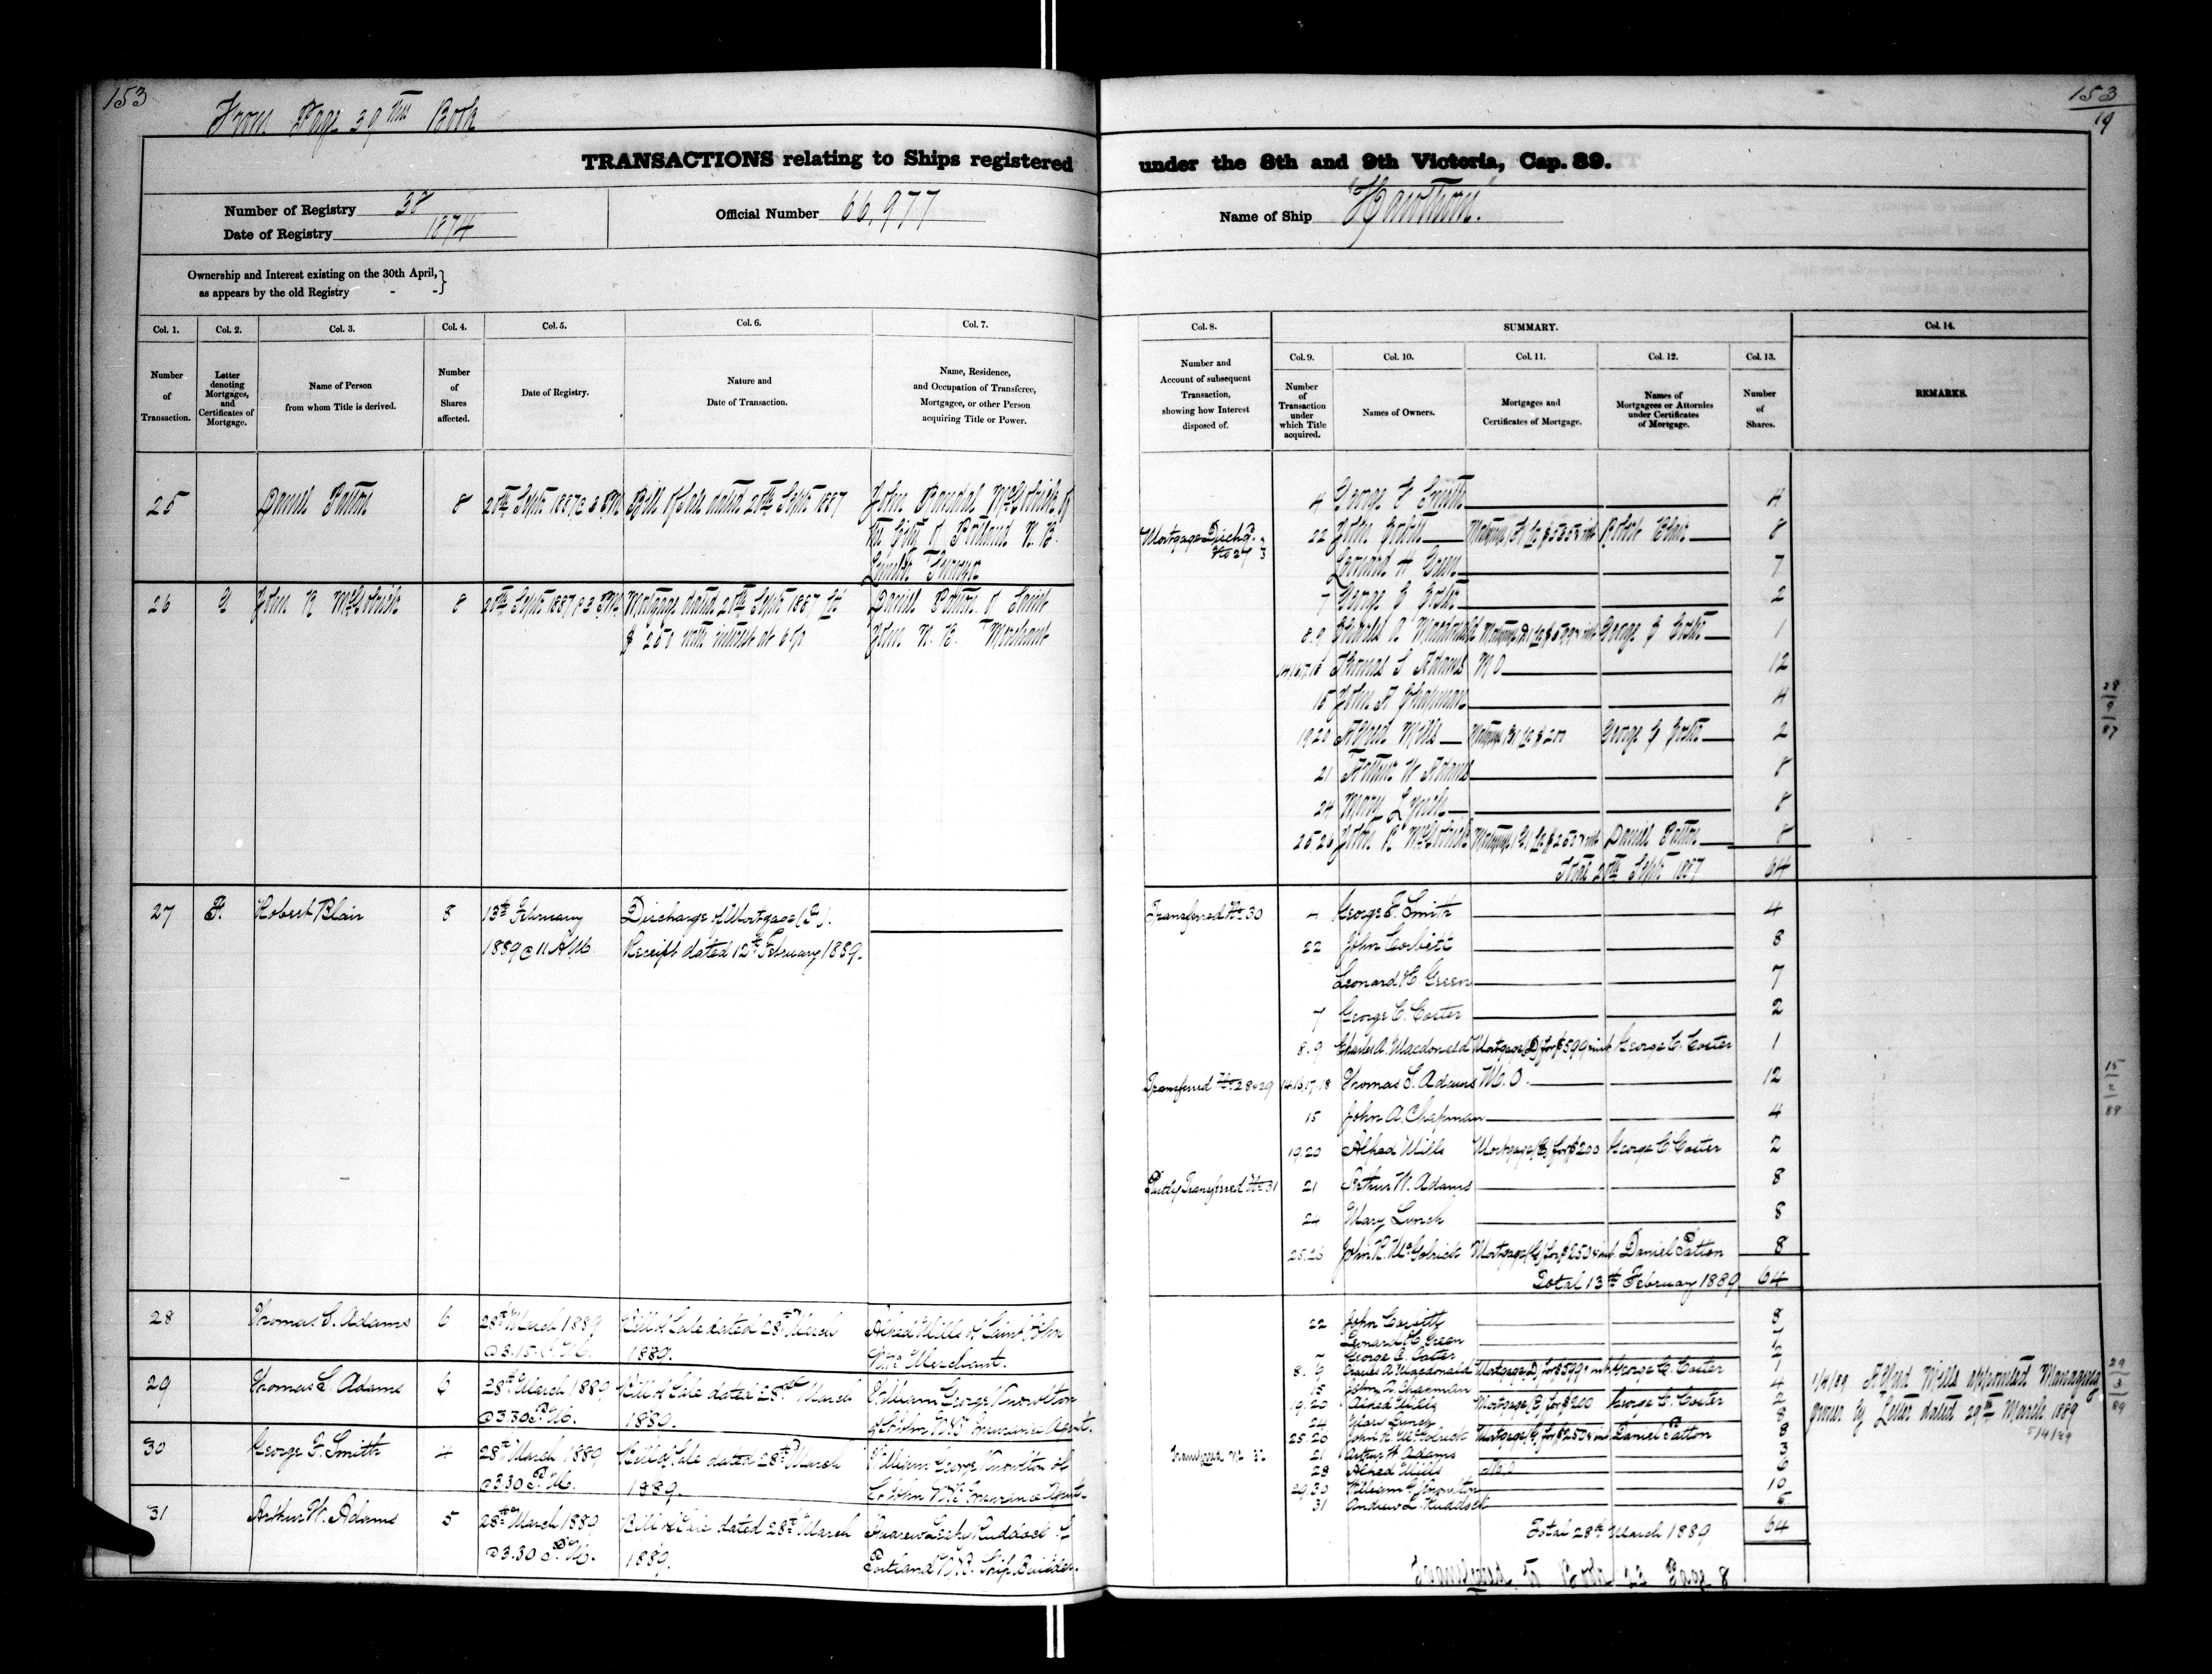 153
From Page 39 this Book
TRANSACTIONS relating to Ships registered
Number of Registry 38
Date of Registry 1874
Official Number 66,977
Ownership and Interest existing on the 30th April,
as appears by the old Registry - -}
Col. 1. Col. 2. Col. 3. Col. 4. Col. 5. Col. 6. Col. 7.
Number of Transaction.
Letter denoting Mortgages, and Certificates of Mortgage.
Name of Person from whom Title is derived.
Number of Shares affected.
Date of Registry.
Nature and Date of Transaction.
Name, Residence, and Occupation of Transferee, Mortgagee, or other Person acquiring Title or Power.
25 Daniel Patton 8 20th Sept 1887 @ 3 PM Bill of Sale dated 20th Sept 1887 John Randal McGolrick of
the City of Portland N. B.
26 G John R McGolrick 8 20th Sept 1887 @ 3 PM Mortgage dated 20th Sept 1887 for Daniel Patton of Saint
$ 250 with interest at 6 % John N. B. Merchant
27 F. Robert Blair 8 13th February Discharge of Mortgage (F).
1889 @ 11 A.M. Receipt dated 12th February 1889.
28 Thomas S. Adams 6 28th March 1889 Bill of Sale dated 28th March Alfred Mills of Saint John
@ 3.15 P.M. 1889. N.B. Merchant.
29 Thomas S. Adams 6 28th March 1889 Bill of Sale dated 28th March William George Knowlton
@ 3.30 P.M. 1889. of St John N.B. Insurance Agent.
30 George F. Smith 4 28th March 1889 Bill of Sale dated 28th March William George Knowlton of
@ 3.30 P.M. 1889. St John N.B. Insurance Agent.
31 Arthur W. Adams 5 28th March 1889 Bill of Sale dated 28th March Andrew Leahy Ruddock of
@ 3.30 P.M. 1889. Portland N.B. Ship Builder.
153
19
under the 8th and 9th Victoria, Cap. 89.
Name of Ship "Hawthorn."
Col. 8. SUMMARY. Col. 14.
Col. 9. Col. 10. Col. 11. Col. 12. Col. 13.
Number and Account of subsequent Transaction, showing how Interest disposed of.
Number of Transaction under which Title acquired.
Names of Owners.
Mortgages and Certificates of Mortgage.
Names of Mortgagees or Attornies under Certificates of Mortgage.
Number of Shares.
REMARKS.
4 George F Smith 4
Mortgage Disch'd. No 27 22 John Corbett Mortgage (F) for $ Robert Blair 8
Leonard H Green 7
7 George C Coster 2
8.9 Charles A Macdonald Mortgage (D) for $599 int George C Coster 1
14.16.17.18 Thomas S Adams M O 12
15 John A Chapman 4
19.20 Alfred Mills Mortgage (E) for $200 George C Coster 2
21 Arthur W Adams 8
24 Mary Lynch 8
25.26 John R McGolrick Mortgage (G) for $250 & int Daniel Patton 8
Total 20th Sept 1887 64
28
9
87
Transferred No. 30 4 George F. Smith 4
22 John Corbett 8
Leonard H. Green 7
7 George C. Coster 2
8.9 Charles A. Macdonald Mortgage (D) for $599 int George C. Coster 1
Transferred No. 28 & 29 14.16.17.18 Thomas S. Adams M. O. 12
15 John A. Chapman 4
19.20 Alfred Mills Mortgage (E) for $200 George C. Coster 2
Partly Transferred No. 31 21 Arthur W. Adams 8
24 Mary Lynch 8
25.26 John R. McGolrick Mortgage (G) for $250 & int. Daniel Patton 8
Total 13th February 1889 64
15
2
89
22 John Corbett 8
Leonard H. Green 7
7 George C. Coster 2
8.9 Charles A. Macdonald Mortgage (D) for $599 int George C. Coster 1
15 John A. Chapman 4
19.20 Alfred Mills Mortgage (E) for $200 George C. Coster 2
24 Mary Lynch 8
25.26 John R. McGolrick Mortgage (G) for $250 & int Daniel Patton 8
Transferred No 32 21 Arthur W. Adams 3
28 Alfred Mills 6
29.30 William G. Knowlton 10
31 Andrew L. Ruddock 5
Total 28th March 1889 64
1/4/89 Alfred Mills appointed Managing
Owner by Letter dated 29th March 1889
5/4/89
29
3
89
Page 8